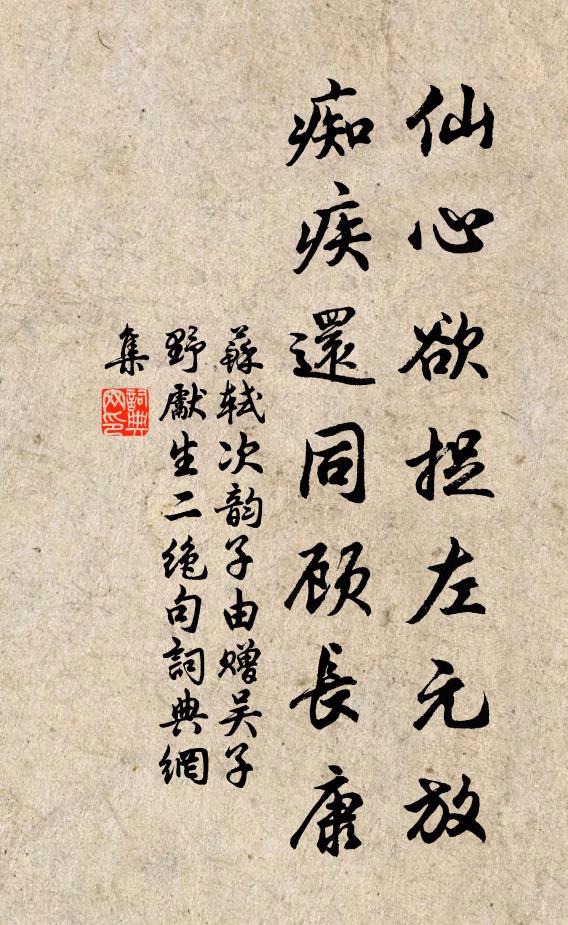 仙心欲捉左元放
痴疾還同顾長康
蘇轼次韵子由赠吴子
野獻生二绝句詞典網
集
詞典
网印